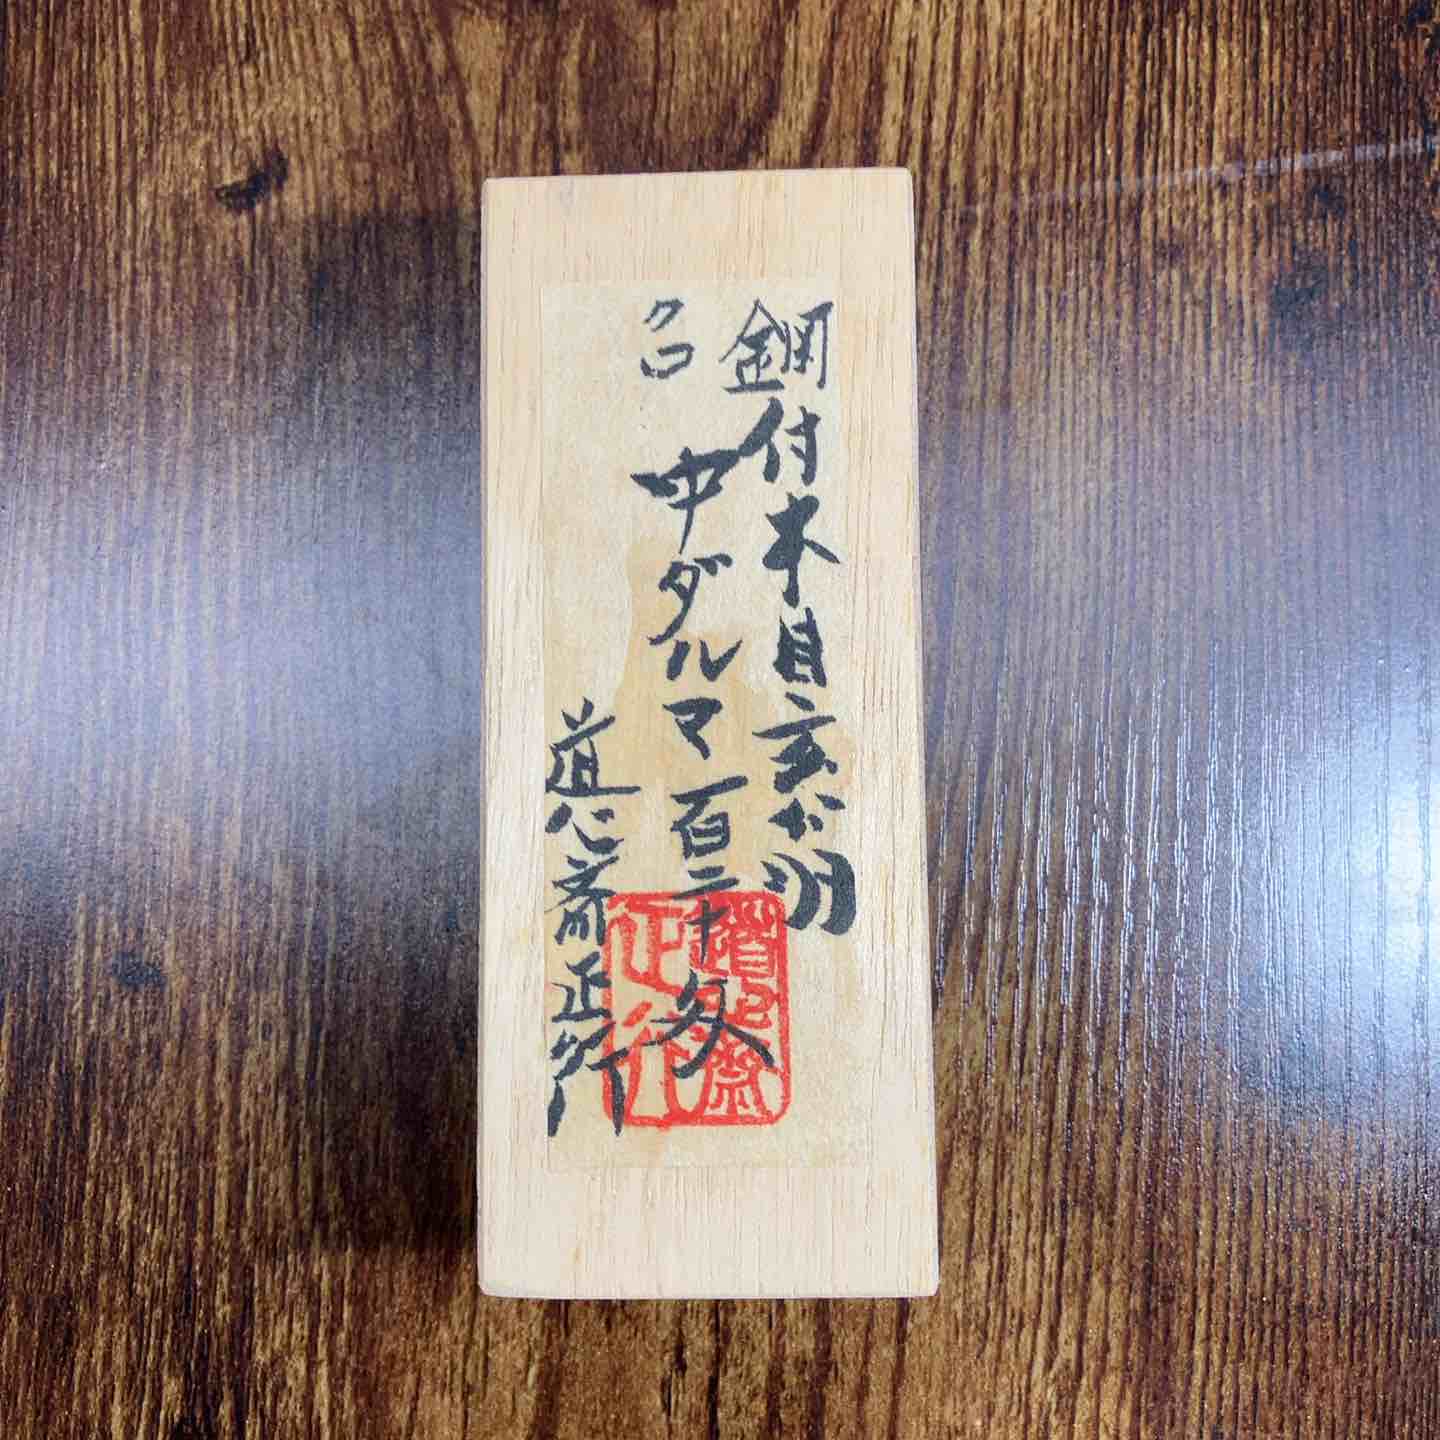 鋼付木目玄翁
クロ 中ダルマ百二十匁
道心斎正行
道心斎
正行